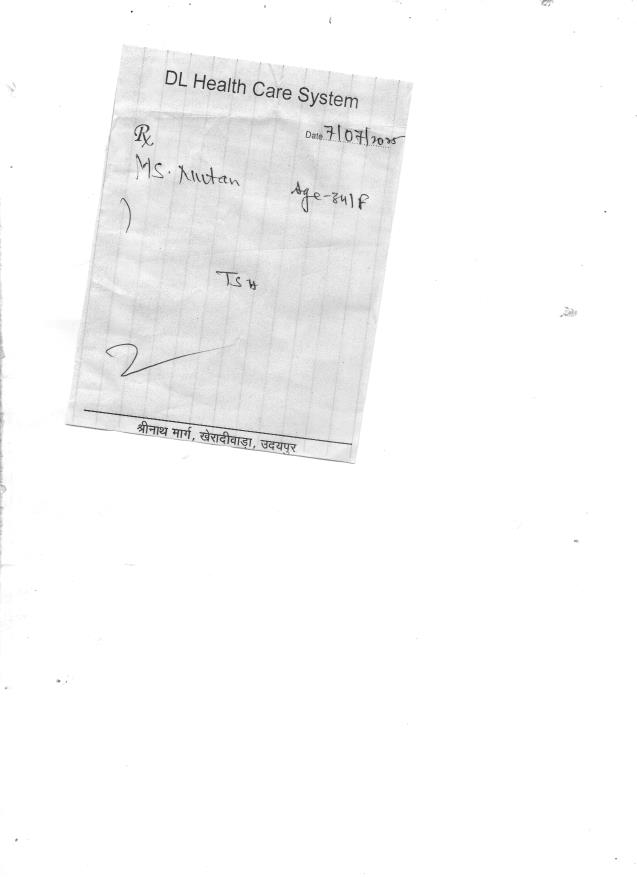 DL Health Care System
Date 7/07/2025
Rx
MS. Nutan
Age-34/F
TSH
श्रीनाथ मार्ग, खेरादीवाड़ा, उदयपुर